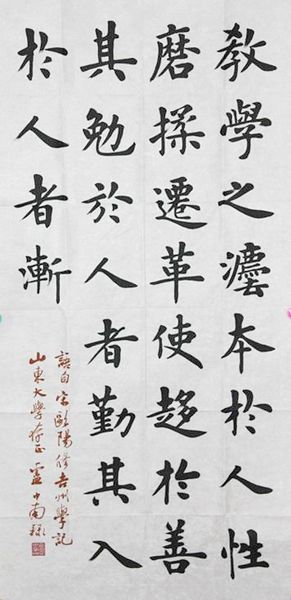 教學之灋本於人性
磨揉遷革使趨於善
其勉於人者勤其入
於人者漸
語自宋歐陽修吉州學記
山東大學存正 盧中南録